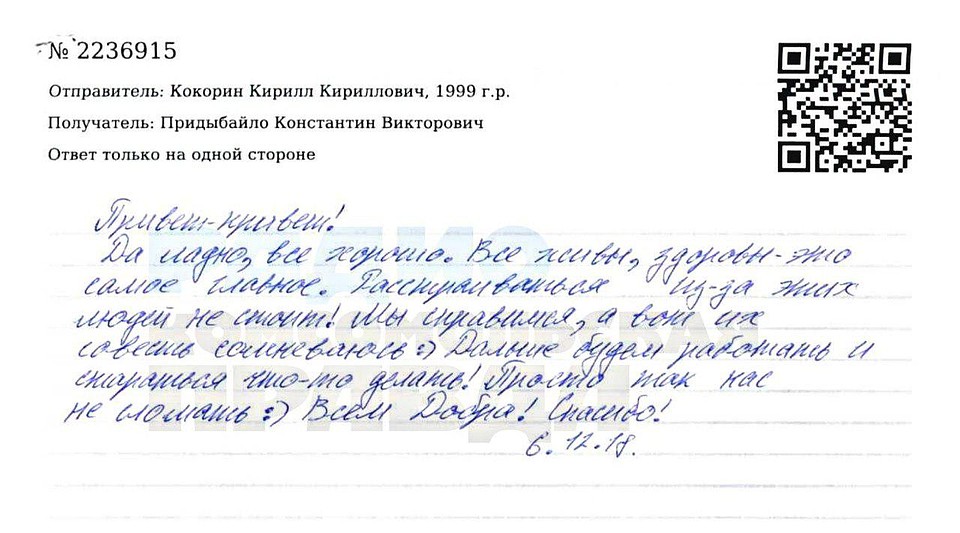 № 2236915
Отправитель: Кокорин Кирилл Кириллович, 1999 г.р.
Получатель: Придыбайло Константин Викторович
Ответ только на одной стороне
Привет-привет!
Да ладно, все хорошо. Все живы, здоровы - это
самое главное. Расстраиваться из-за этих
людей не стоит! Мы справимся, а вот их
совесть сомневаюсь :) Дальше будем работать и
стараться что-то делать! Просто так нас
не сломать :) Всем Добра! Спасибо!
6.12.18.
РАДИО
КОМСОМОЛЬСКАЯ
ПРАВДА